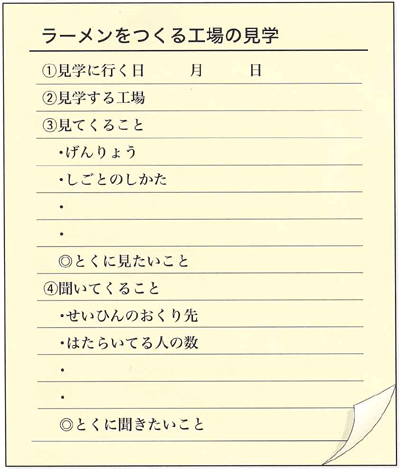 ラーメンをつくる工場の見学
①見学に行く日　　　月　　　日
②見学する工場
③見てくること
・げんりょう
・しごとのしかた
・
・
◎とくに見たいこと
④聞いてくること
・せいひんのおくり先
・はたらいてる人の数
・
・
◎とくに聞きたいこと